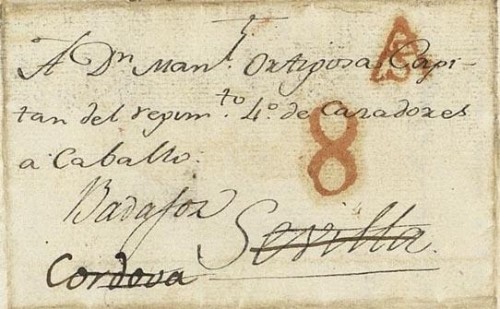 A Dn Manl. Ortigosa, Capi-
tan del regimto. 4o. de Cazadores
a Caballo.
8
Badajoz
Sevilla.
Cordova